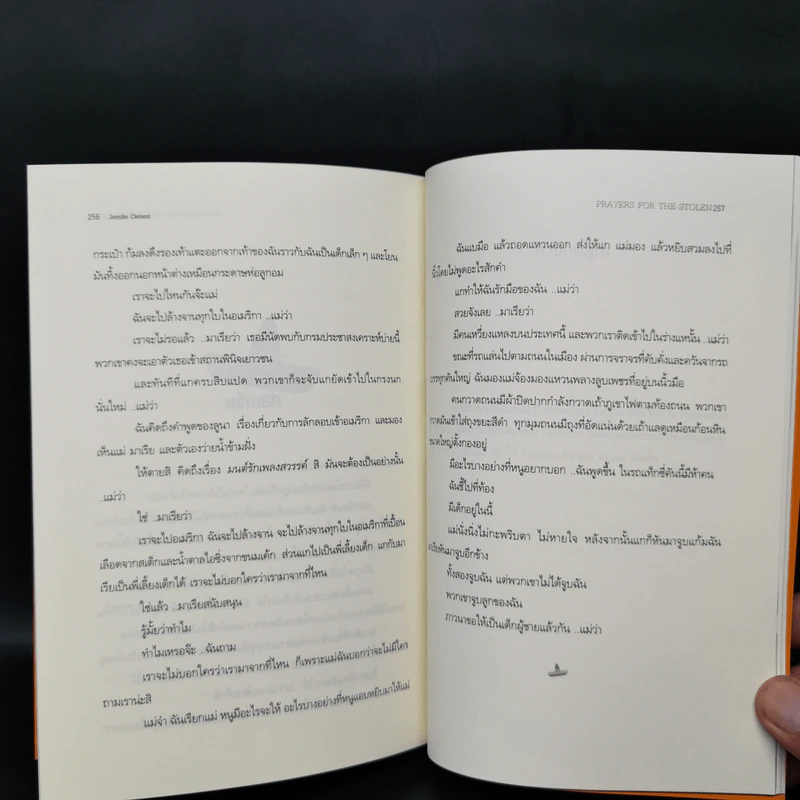 256 Jennifer Clement
กระเป๋า ก้มลงดึงรองเท้าแตะออกจากเท้าของฉันราวกับฉันเป็นเด็กเล็ก ๆ และโยน
มันทิ้งออกนอกหน้าต่างเหมือนกระดาษห่อลูกอม
เราจะไปไหนกันจ๊ะแม่
ฉันจะไปล้างจานทุกใบในอเมริกา ..แม่ว่า
เราจะไม่รอแล้ว ..มาเรียว่า เธอมีนัดพบกับกรมประชาสงเคราะห์บ่ายนี้
พวกเขาคงจะเอาตัวเธอเข้าสถานพินิจเยาวชน
และทันทีที่แกครบสิบแปด พวกเขาก็จะจับแกยัดเข้าไปในกรงนก
นั่นใหม่ ..แม่ว่า
ฉันคิดถึงคำพูดของลูนา เรื่องเกี่ยวกับการลักลอบเข้าอเมริกา และมอง
เห็นแม่ มาเรีย และตัวเองว่ายน้ำข้ามฝั่ง
ให้ตายสิ คิดถึงเรื่อง มนต์รักเพลงสวรรค์ สิ มันจะต้องเป็นอย่างนั้น
..แม่ว่า
ใช่ ..มาเรียว่า
เราจะไปอเมริกา ฉันจะไปล้างจาน จะไปล้างจานทุกใบในอเมริกาที่เปื้อน
เลือดจากสเต็กและน้ำตาลไอซิ่งจากขนมเค้ก ส่วนแกไปเป็นพี่เลี้ยงเด็ก แกกับมา
เรียเป็นพี่เลี้ยงเด็กได้ เราจะไม่บอกใครว่าเรามาจากที่ไหน
ใช่แล้ว ..มาเรียสนับสนุน
รู้มั้ยว่าทำไม
ทำไมเหรอจ๊ะ ..ฉันถาม
เราจะไม่บอกใครว่าเรามาจากที่ไหน ก็เพราะแม่ฉันบอกว่าจะไม่มีใคร
ถามเราน่ะสิ
แม่จ๋า ฉันเรียกแม่ หนูมีอะไรจะให้ อะไรบางอย่างที่หนูแอบหยิบมาให้แม่
PRAYERS FOR THE STOLEN 257
ฉันแบมือ แล้วถอดแหวนออก ส่งให้แก แม่มอง แล้วหยิบสวมลงไปที่
นิ้วโดยไม่พูดอะไรสักคำ
แกทำให้ฉันรักมือของฉัน ..แม่ว่า
สวยจังเลย ..มาเรียว่า
มีคนเหวี่ยงแหลงบนประเทศนี้ และพวกเราติดเข้าไปในร่างแหนั้น ..แม่ว่า
ขณะที่รถแล่นไปตามถนนในเมือง ผ่านการจราจรที่คับคั่งและควันจากรถ
บรรทุกคันใหญ่ ฉันมองแม่จ้องมองแหวนพลางลูบเพชรที่อยู่บนนิ้วมือ
คนกวาดถนนมีผ้าปิดปากกำลังกวาดเถ้าภูเขาไฟตามท้องถนน พวกเขา
กวาดมันเข้าใส่ถุงขยะสีดำ ทุกมุมถนนมีถุงที่อัดแน่นด้วยเถ้าแลดูเหมือนก้อนหิน
ขนาดใหญ่ตั้งกองอยู่
มีอะไรบางอย่างที่หนูอยากบอก ..ฉันพูดขึ้น ในรถแท็กซี่คันนี้มีห้าคน
ฉันชี้ไปที่ท้อง
มีเด็กอยู่ในนี้
แม่นั่งนิ่งไม่กะพริบตา ไม่หายใจ หลังจากนั้นแกก็หันมาจูบแก้มฉัน
มาเรียหันมาจูบอีกข้าง
ทั้งสองจูบฉัน แต่พวกเขาไม่ได้จูบฉัน
พวกเขาจูบลูกของฉัน
ภาวนาขอให้เป็นเด็กผู้ชายแล้วกัน ..แม่ว่า